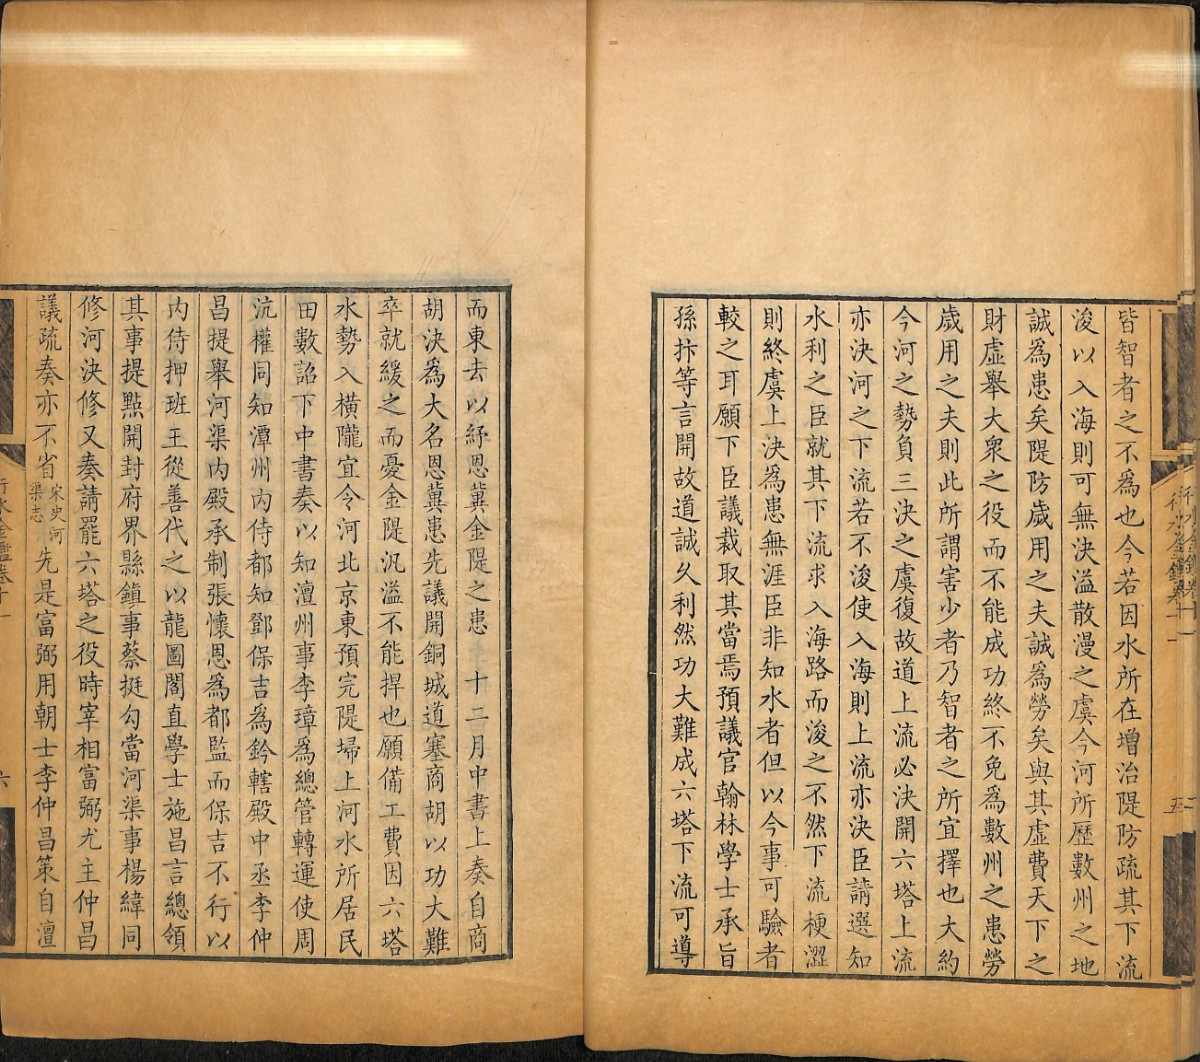 皆智者之不為也今若因水所在增治隄防疏其下流
浚以入海則可無決溢散漫之虞今河所歷數州之地
誠為患矣隄防歲用之夫誠為勞矣與其虛費天下之
財虛舉大衆之役而不能成功終不免為數州之患勞
歲用之夫則此所謂害少者乃智者之所宜擇也大約
今河之勢負三決之虞復故道上流必決開六塔上流
亦決河之下流若不浚使入海則上流亦決臣請選知
水利之臣就其下流求入海路而浚之不然下流梗澀
則終虞上決為患無涯臣非知水者但以今事可驗者
較之耳願下臣議裁取其當焉預議官翰林學士承旨
孫抃等言開故道誠久利然功大難成六塔下流可導
而東去以紓恩冀金隄之患 十二月中書上奏自商
胡決為大名恩冀患先議開銅城道塞商胡以功大難
卒就緩之而憂金隄汎溢不能捍也願備工費因六塔
水勢入橫隴宜令河北京東預完隄埽上河水所居民
田數詔下中書奏以知澶州事李璋為總管轉運使周
沆權同知潭州內侍都知鄧保吉為鈐轄殿中丞李仲
昌提舉河渠內殿承制張懷恩為都監而保吉不行以
內侍押班王從善代之以龍圖閣直學士施昌言總領
其事提點開封府界縣鎮事蔡挺勾當河渠事楊緯同
修河決修又奏請罷六塔之役時宰相富弼尤主仲昌
議疏奏亦不省宋史河渠志先是富弼用朝士李仲昌策自澶
行水金鑑卷十一
五
行水金鑑卷十一
六